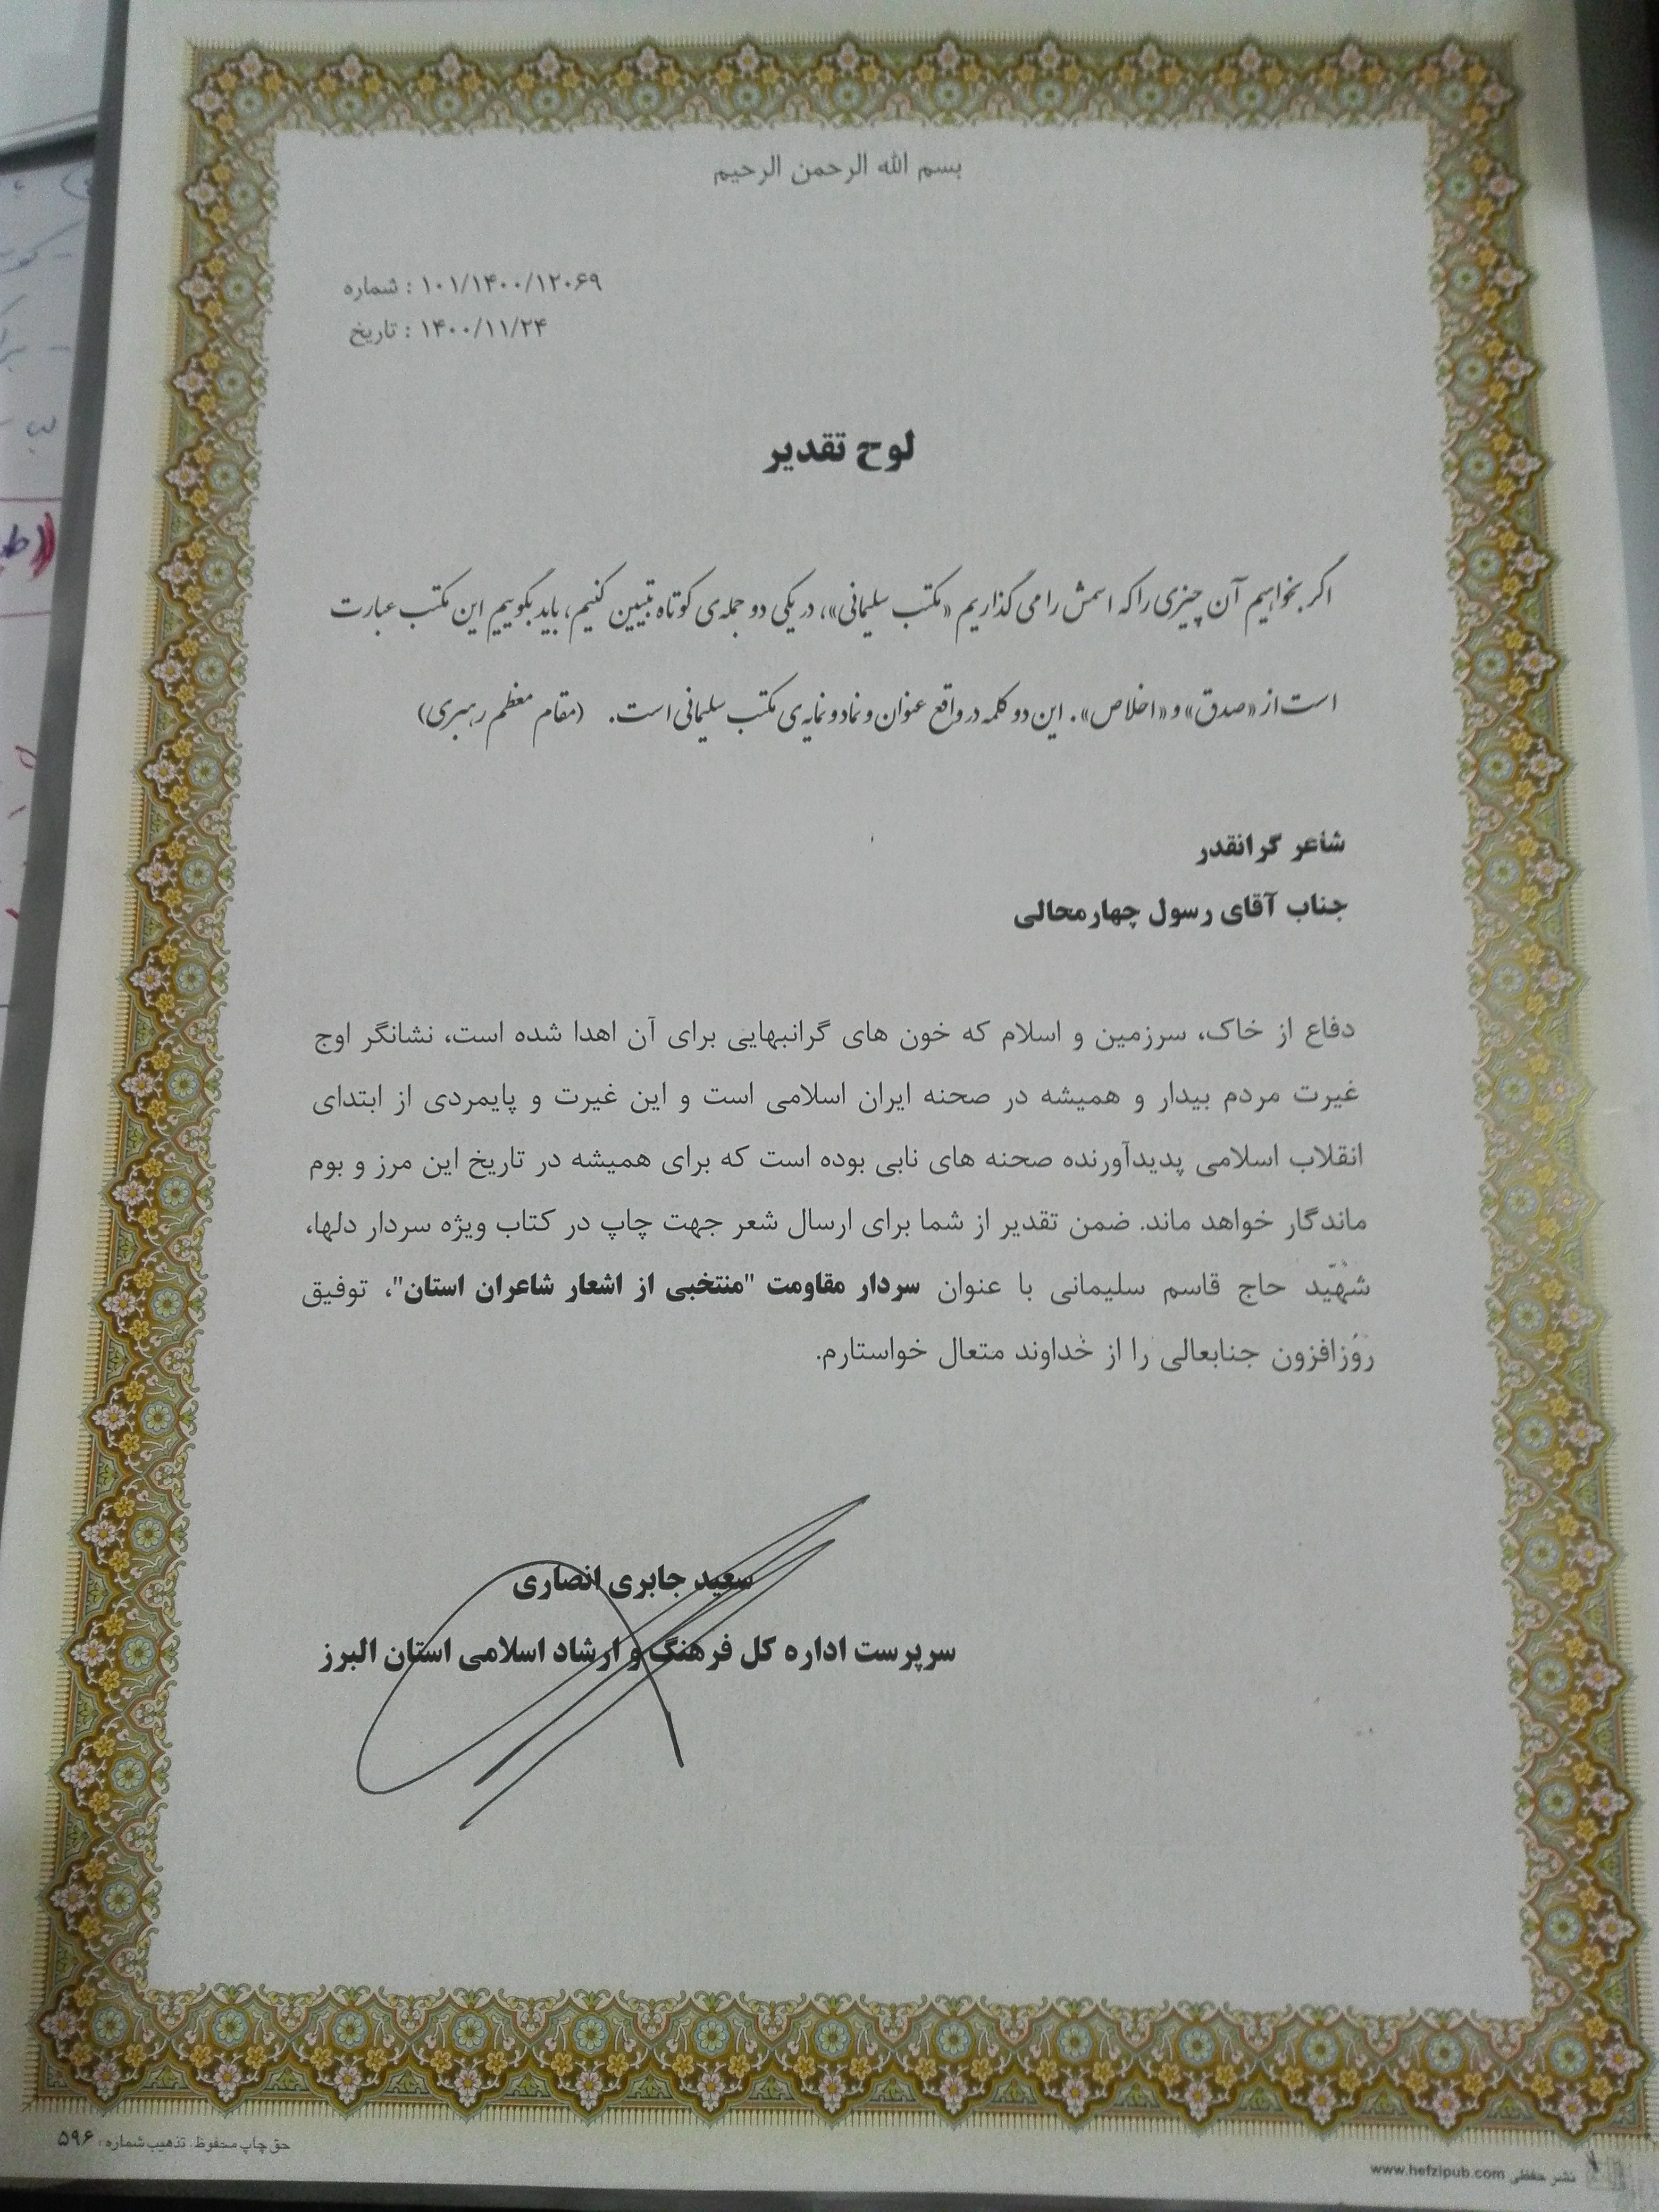 بسم الله الرحمن الرحیم
شماره : ۱۰۱/۱۴۰۰/۱۲۰۶۹
تاریخ : ۱۴۰۰/۱۱/۲۴
لوح تقدیر
اگر بخواهیم آن چیزی را که اسمش را می گذاریم «مکتب سلیمانی»، در یکی دو جمله‌ی کوتاه تبیین کنیم، باید بگوییم این مکتب عبارت
است از «صدق» و «اخلاص». این دو کلمه در واقع عنوان و نماد و نمایه‌ی مکتب سلیمانی است. (مقام معظم رهبری)
شاعر گرانقدر
جناب آقای رسول چهارمحالی
دفاع از خاک، سرزمین و اسلام که خون های گرانبهایی برای آن اهدا شده است، نشانگر اوج
غیرت مردم بیدار و همیشه در صحنه ایران اسلامی است و این غیرت و پایمردی از ابتدای
انقلاب اسلامی پدیدآورنده صحنه های نابی بوده است که برای همیشه در تاریخ این مرز و بوم
ماندگار خواهد ماند. ضمن تقدیر از شما برای ارسال شعر جهت چاپ در کتاب ویژه سردار دلها،
شهید حاج قاسم سلیمانی با عنوان سردار مقاومت "منتخبی از اشعار شاعران استان"، توفیق
روزافزون جنابعالی را از خداوند متعال خواستارم.
سعید جابری انصاری
سرپرست اداره کل فرهنگ و ارشاد اسلامی استان البرز
حق چاپ محفوظ. تذهیب شماره : ۵۹۶
نشر حفظی www.hefzipub.com